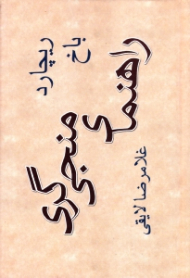 ریچارد
باخ
راهنمای
منجی گری
غلامرضا لایقی